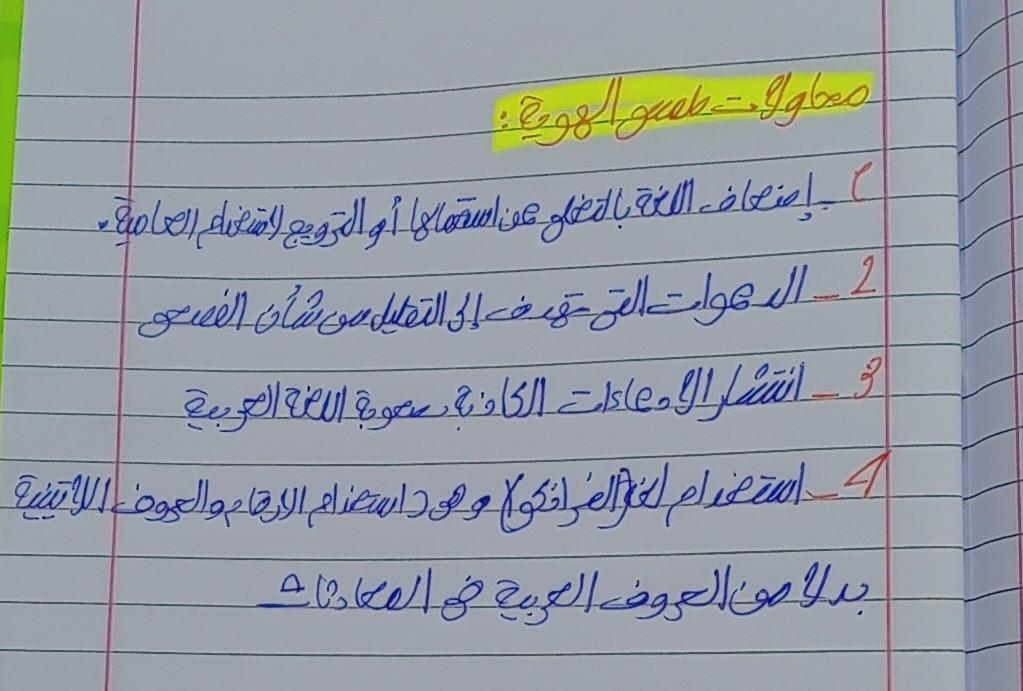 محاولات طمس الهوية :
1 - إضعاف اللغة بالتخلي عن استعمالها أو الترويج لاستخدام العامية .
2 - الدعوات التي تهدف إلى التقليل من شأن الفصحى
3 - انتشار الادعاءات الكاذبة بصعوبة اللغة العربية
4 - استخدام لغة (الفرانكو) وهو ( استخدام الارقام والحروف اللاتينية
بدلا من الحروف العربية في المحادثات